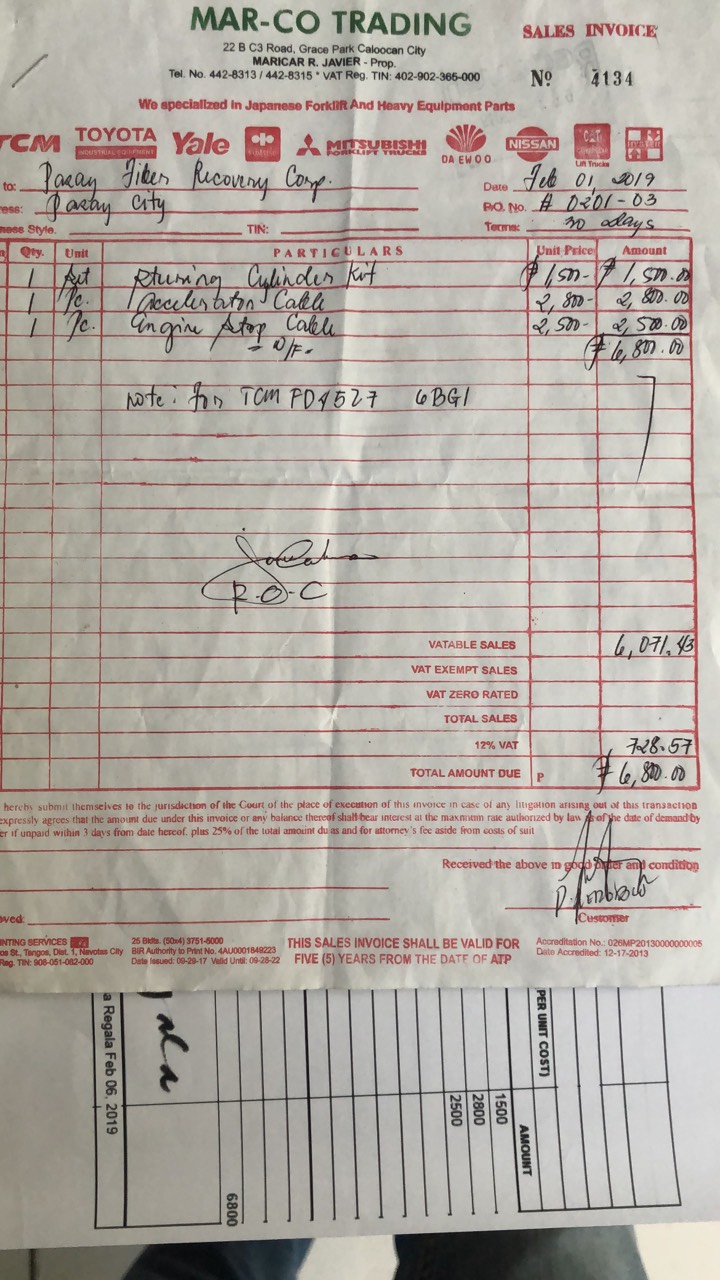 MAR-CO TRADING
SALES INVOICE
22 B C3 Road, Grace Park Caloocan City
MARICAR R. JAVIER - Prop.
Tel. No. 442-8313 / 442-8315 * VAT Reg. TIN: 402-902-365-000
Nº 4134
We specialized in Japanese Forklift And Heavy Equipment Parts
TCM TOYOTA INDUSTRIAL EQUIPMENT Yale MITSUBISHI FORKLIFT TRUCKS DAEWOO NISSAN CAT Lift Trucks
to: Pasay Fiber Recovery Corp. Date Feb 01, 2019
ress: Pasay City P.O. No. # 0201-03
ness Style. TIN: Terms: 30 days
Qty. Unit PARTICULARS Unit Price Amount
1 kit Sturing Cylinder Kit ₱1,500- ₱1,500.00
1 Pc. Accelerator Cable 2,800- 2,800.00
1 Pc. Engine Stop Cable 2,500- 2,500.00
= N/F = ₱6,800.00
note: for TCM FD45Z7 6BG1
R.O.C
VATABLE SALES 6,071.43
VAT EXEMPT SALES
VAT ZERO RATED
TOTAL SALES
12% VAT 728.57
TOTAL AMOUNT DUE P ₱6,800.00
hereby submit themselves to the jurisdiction of the Court of the place of execution of this invoice in case of any litigation arising out of this transaction
expressly agrees that the amount due under this invoice or any balance thereof shall bear interest at the maximum rate authorized by law as of the date of demand by
er if unpaid within 3 days from date hereof. plus 25% of the total amount du as and for attorney's fee aside from costs of suit
Received the above in good order and condition
Customer
oved:
INTING SERVICES
os St., Tangos, Dist. 1, Navotas City
Reg. TIN: 908-051-082-000
25 Bklts. (50x4) 3751-5000
BIR Authority to Print No. 4AU0001849223
Date Issued: 09-29-17 Valid Until: 09-28-22
THIS SALES INVOICE SHALL BE VALID FOR
FIVE (5) YEARS FROM THE DATE OF ATP
Accreditation No.: 026MP20130000000005
Date Accredited: 12-17-2013
PER UNIT COST)
AMOUNT
1500
2800
2500
6800
a Regala Feb 06, 2019